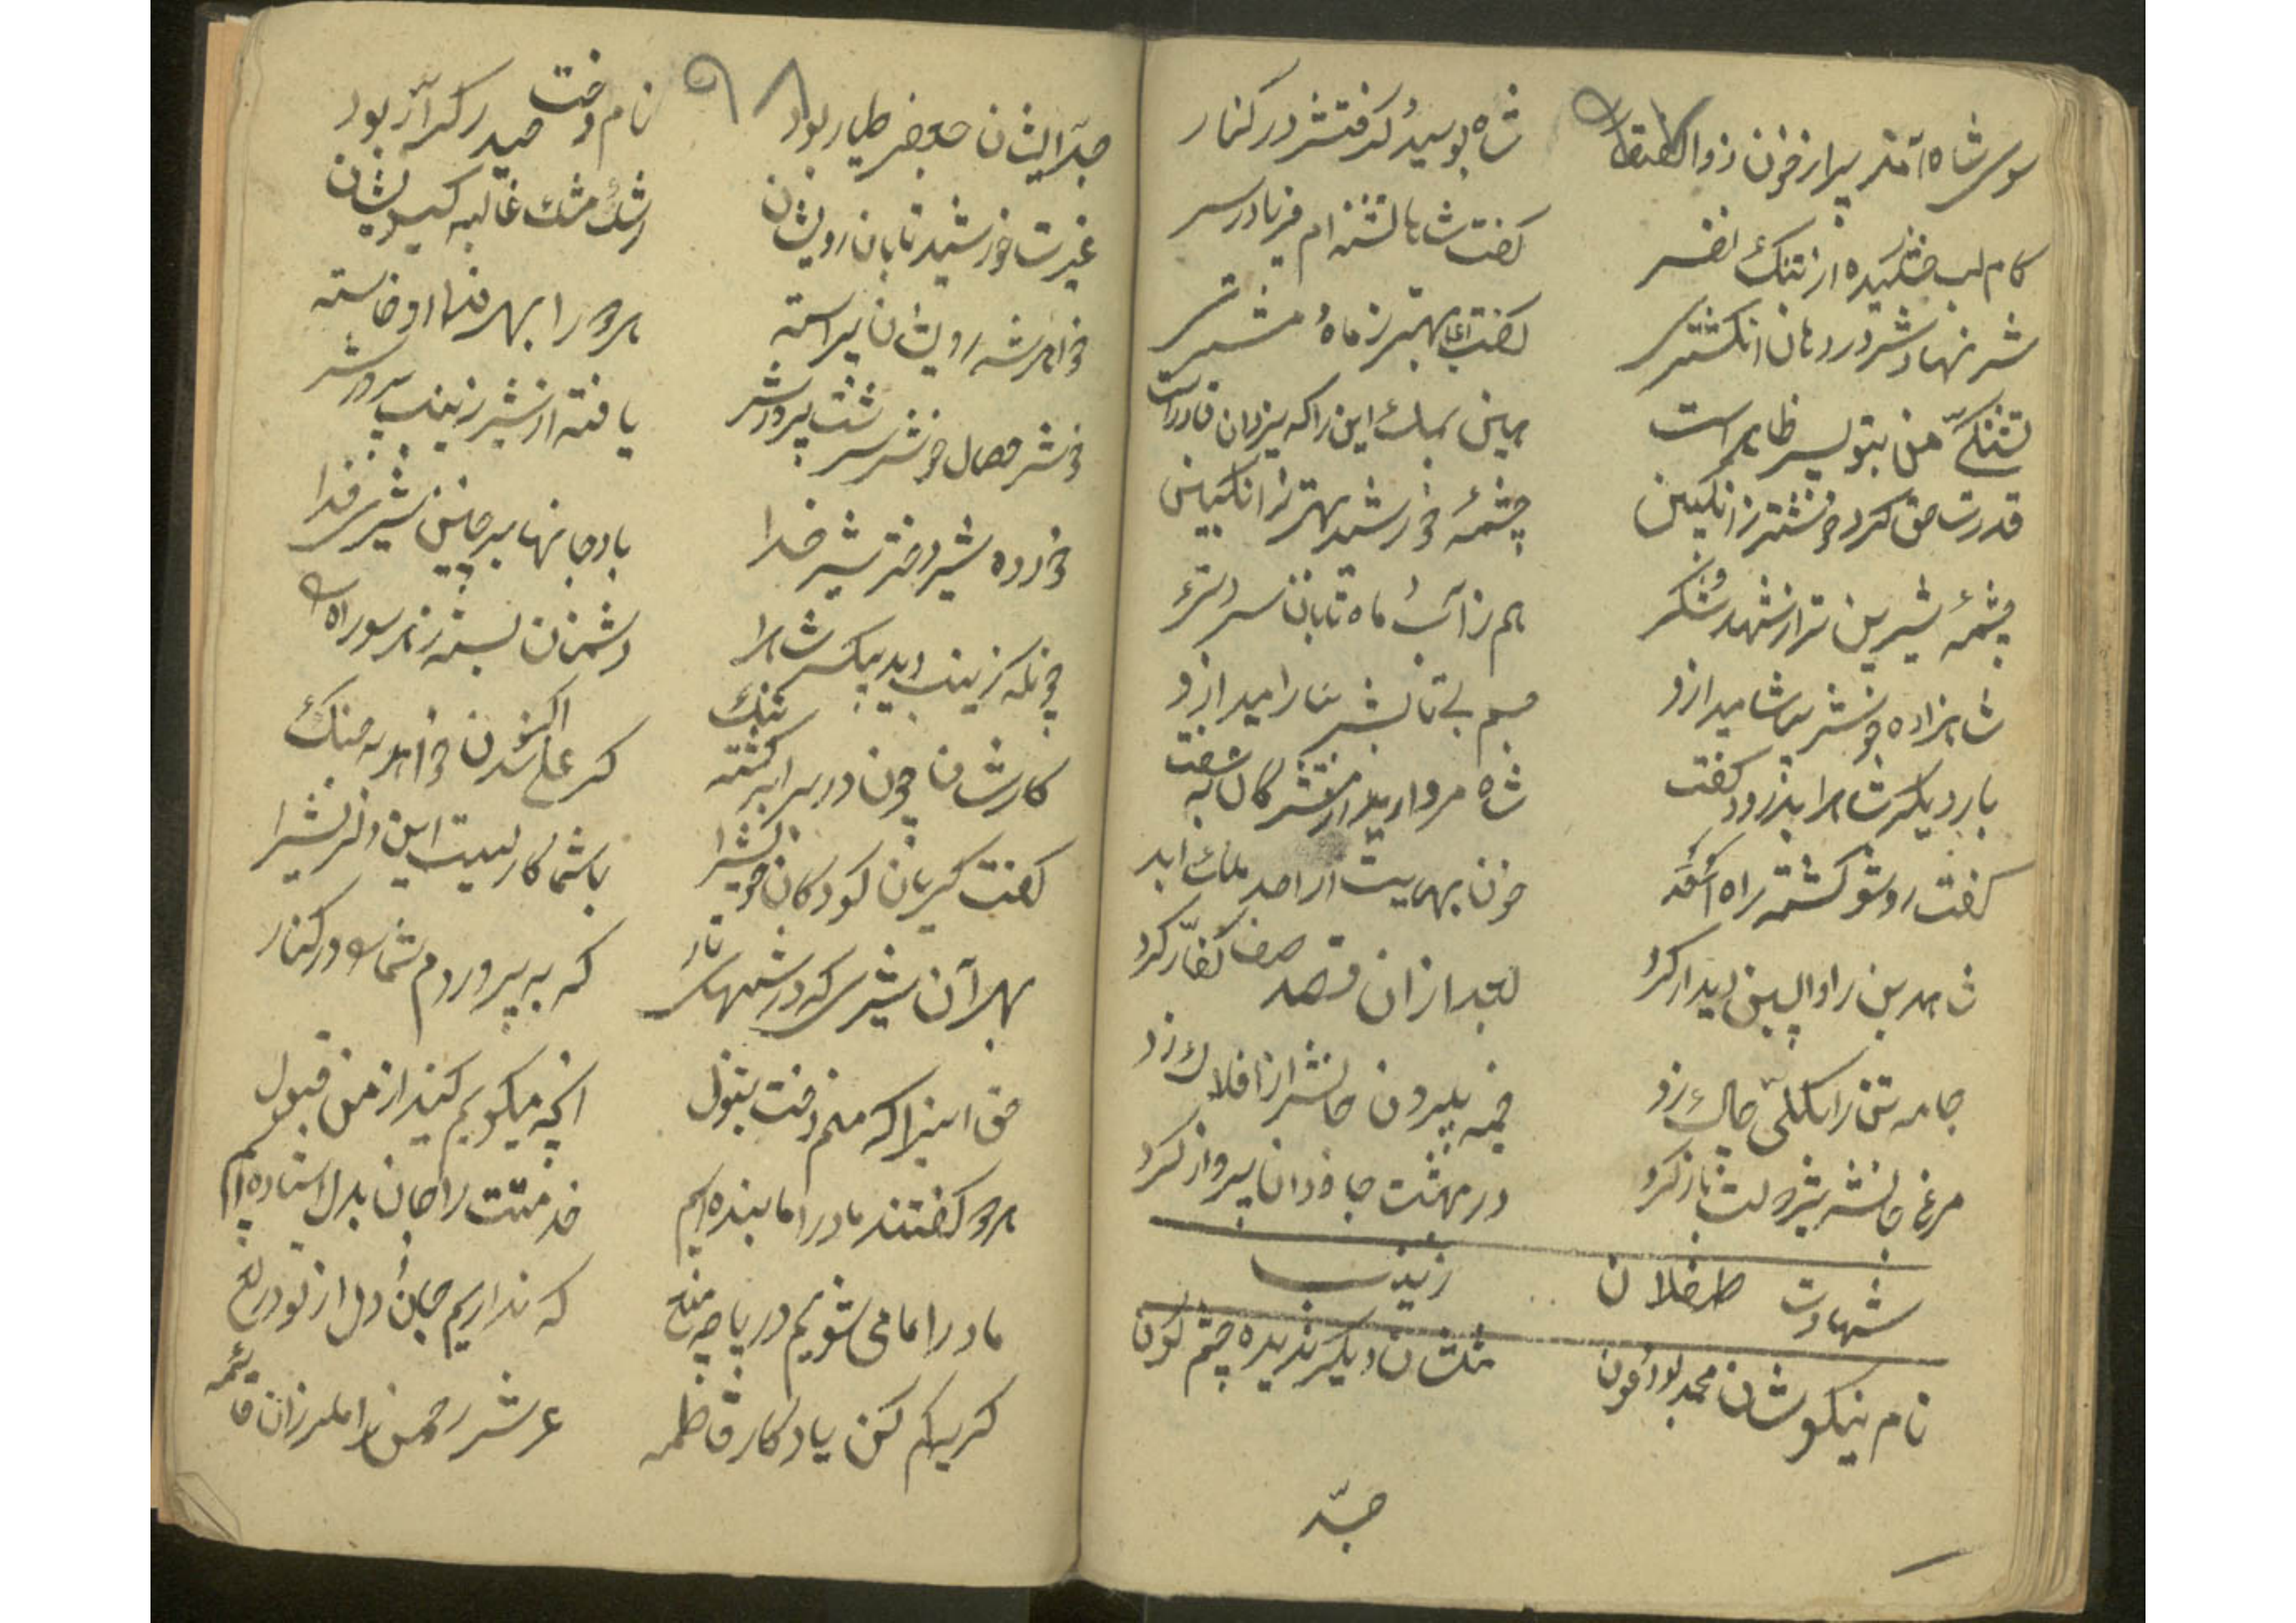 سوی شاه آمد پر از خون ذوالفقار
شاه بوسید گرفتش در کنار
کام لب خشکیده از تنگ نفس
گفت شاها تشنه ام فریادرس
شه نهادش در دهان انگشتری
گفت بهتر ز ماه مشتری
تشنگی من بتو بس ظاهر است
یزدان قادر است
قدرت حق کرد خوشتر ز انگبین
چشمهٔ خورشید بهتر ز انگبین
چشمهٔ شیرین تر از شهد شکر
هم ز آب ماه تابان سردتر
شاهزاده خوش بیاشامید ازو
جسم بی تابش بیارامید ازو
بار دیگر شاه را بدرود گفت
شاه مروارید از
گفت رو تو کشته راه
خون بهایت از احد ملک ابد
شاه دین را واپسین دیدار کرد
بعد از آن قصد صف کفار کرد
جامه تن را بکلی چاک زد
خیمه بیرون جانش از افلاک زد
مرغ جانش بر دولت باز کرد
در بهشت جاودان پرواز کرد
شهادت طفلان زینب
نام نیکوشان محمد بود عون
مثلشان دیگر ندیده چشم کون
جد
۹۸
جد ایشان جعفر طیار بود
نام دخت حیدر کرار بود
غیرت خورشید تابان رویشان
رشک مشک غالیه گیسویشان
خواهر شه رویشان پیراسته
هر دو را بهر فدا او خاسته
خوش خصال خوش سرشت پرورش
یافته از شیر زینب پرورش
خورده شیر دختر شیر خدا
باد جانها بر چنین شیری فدا
چونکه زینب دید بیکس شاه را
دشمنان بسته ز هر سو راه را
کارشان چون در برابر گشته تنگ
کر علی اکبر شدن خواهد به جنگ
گفت گریان کودکان خویش را
با شما کاریست این دلریش را
بهر آن شیری که در شبهای تار
که به پروردم شما در کنار
حق اینرا که منم دخت بتول
آنچه میگویم کنید از من قبول
هر دو گفتند مادرا ما بنده ایم
خدمتت را جان بدل استاده ایم
مادرا ما می شویم در پا چه میغ
که نداریم جان و دل از تو دریغ
گریه کم کن یادگار فاطمه
عرش رحمن را ملرزان قائمه